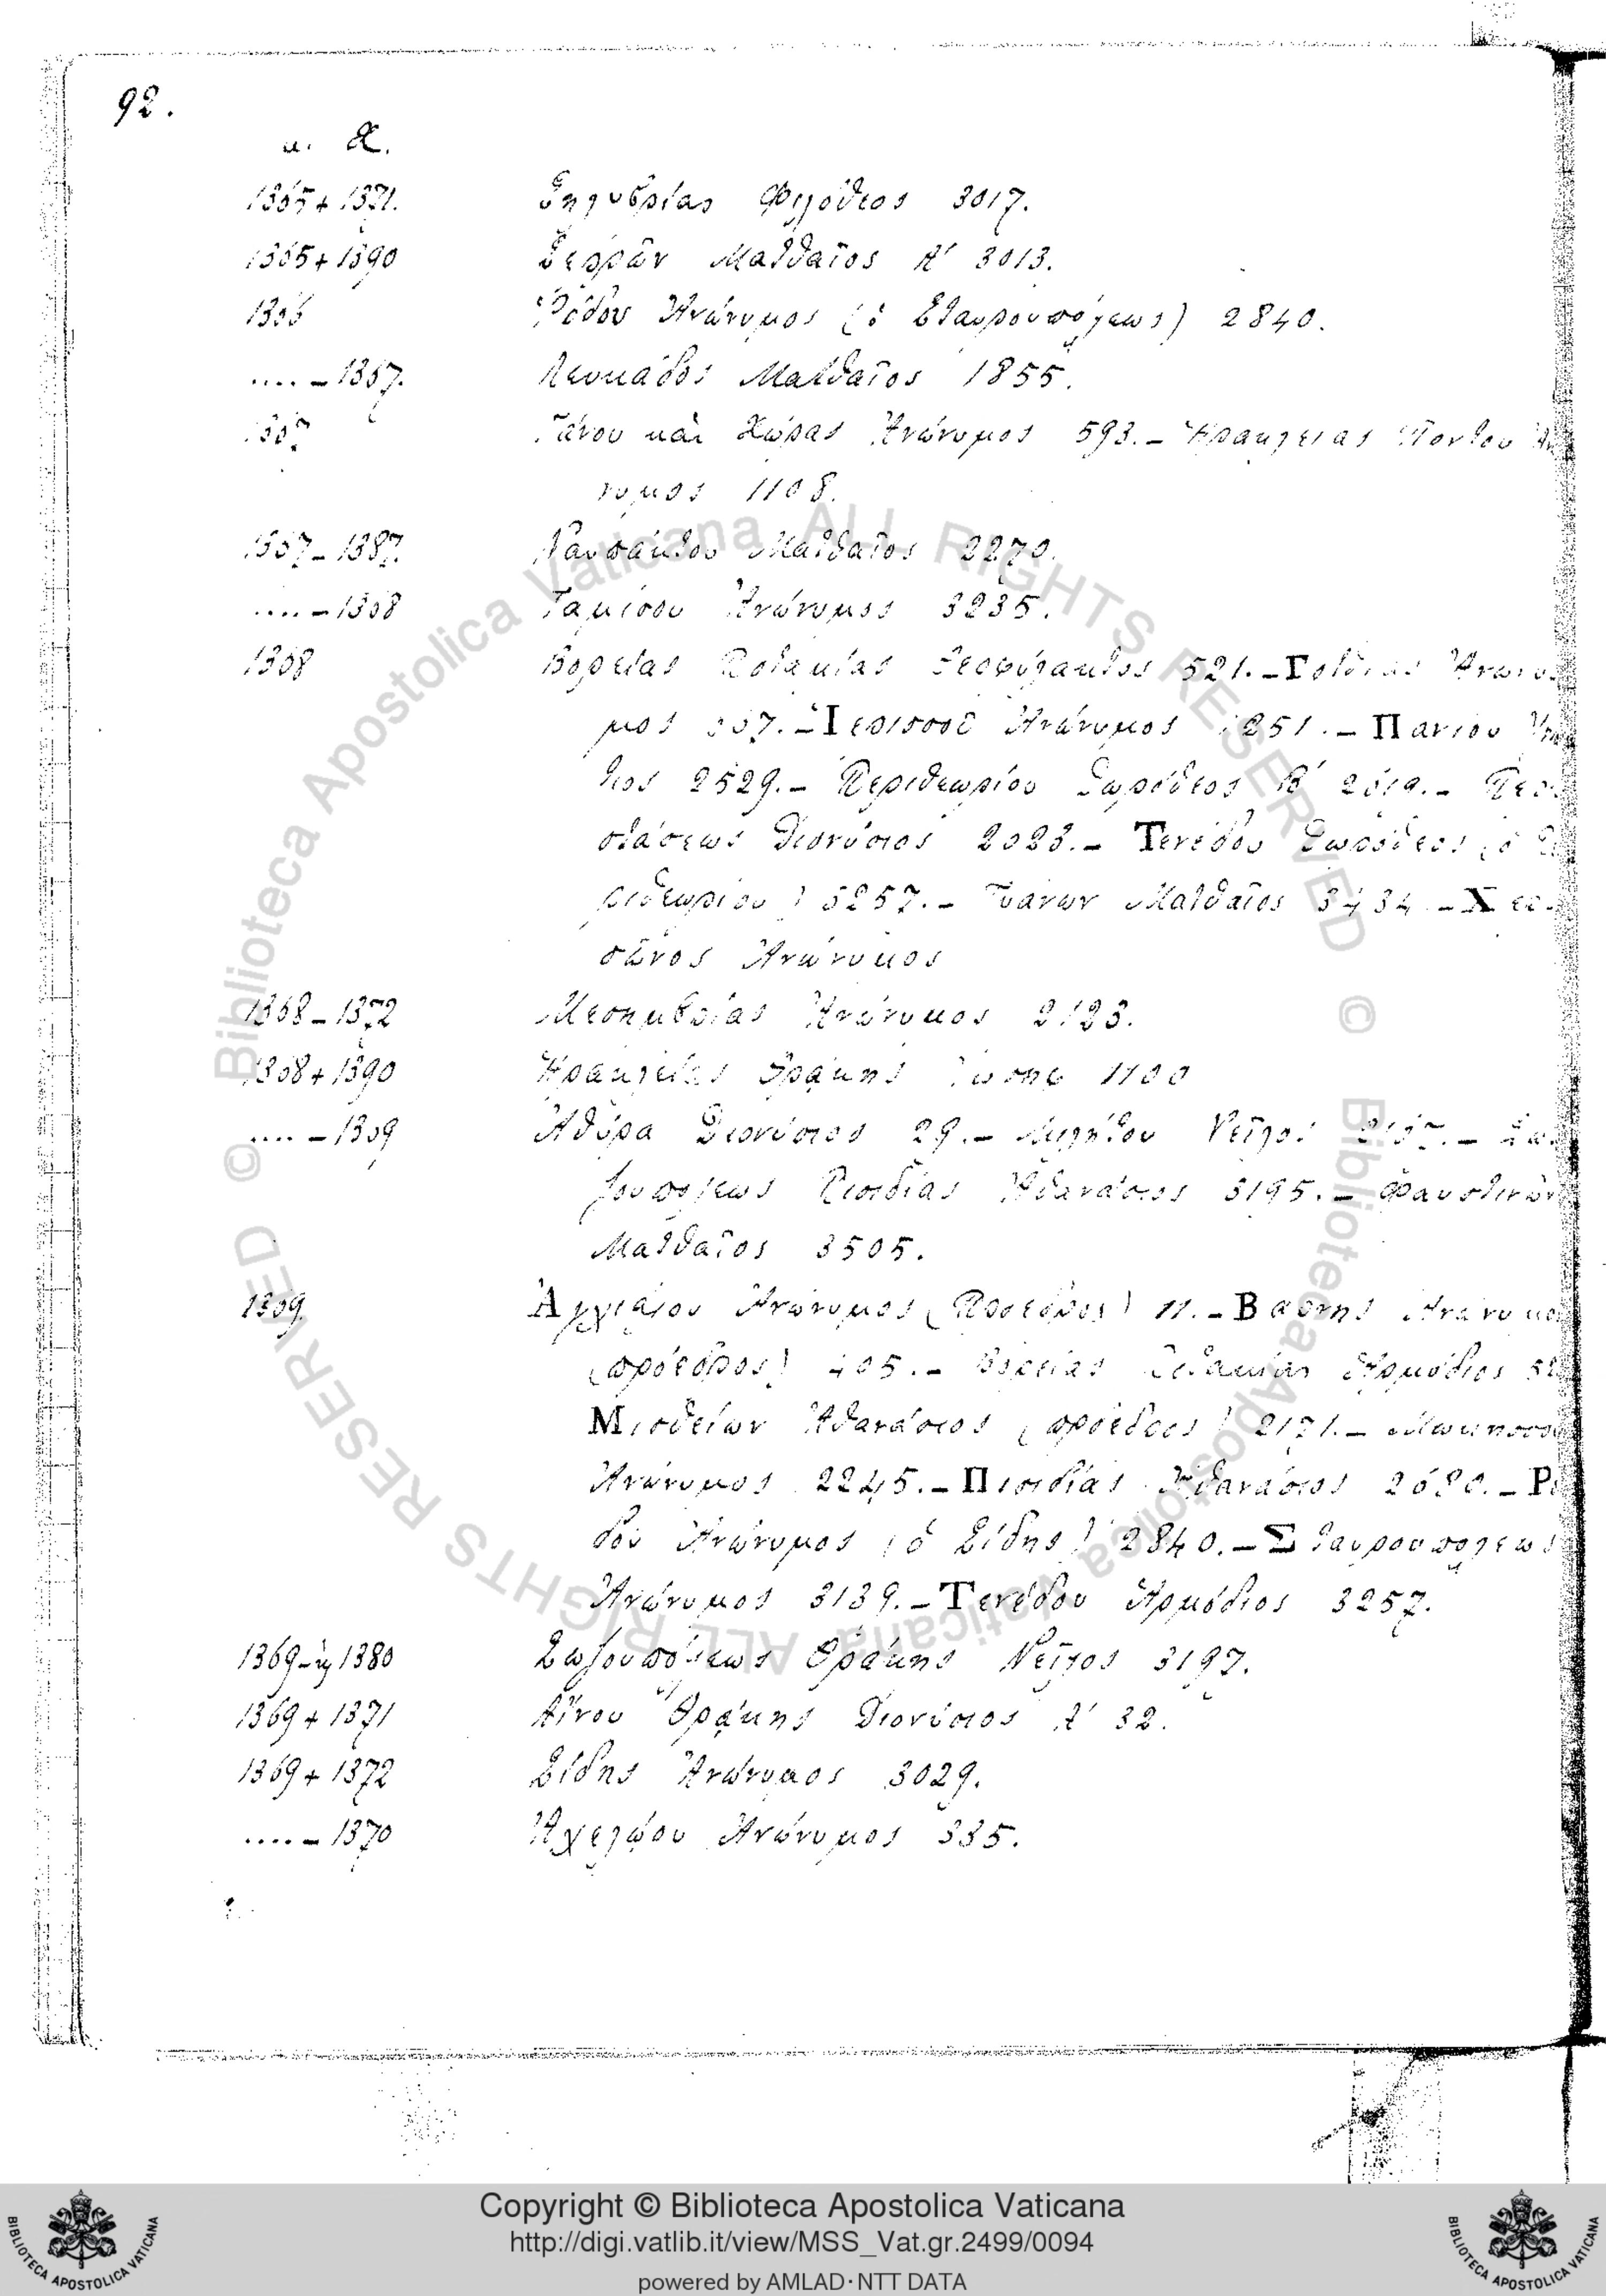 92.
μ. Χ.
1365+1371. Σηλυβρίας Φιλόθεος 3017.
1365+1390 Σερρῶν Ματθαῖος Α' 3013.
1366 Ῥόδου Ἀνώνυμος (ὁ Σταυρουπόλεως) 2840.
.... – 1367. Λευκάδος Ματθαῖος 1855.
1367 Γάνου καὶ Χώρας Ἀνώνυμος 593. – Ἡρακλείας Πόντου
νυμος 1108.
1367 – 1387. Ναυπάκτου Ματθαῖος 2270.
.... – 1368 Ταμίσου Ἀνώνυμος 3235.
1368 Βορείας Ποταμίας Θεοφύλακτος 521. – Γοτθίας Ἀνώνυ
μος – Ἱερισσοῦ Ἀνώνυμος 1251. – Πανίου
τιος 2529. – Περιθεωρίου Δωρόθεος Β' 2619. –
στάσεως Διονύσιος 2023. – Τενέδου Δωρόθεος (ὁ
ριθεωρίου) 3257. – Τυάνων Ματθαῖος 3434 – Χερ
σῶνος Ἀνώνυμος
1368 – 1372 Μεσημβρίας Ἀνώνυμος 2123.
1368+1390 Ἡρακλείας Θρᾴκης Ἰωσήφ 1100
.... – 1369 Ἀθύρα Διονύσιος 29. – Μιλήτου Νεῖλος
ζουπόλεως Πισιδίας Ἀθανάσιος 3195. – Φαυστινῶν
Ματθαῖος 3505.
1369. Ἀγχιάλου Ἀνώνυμος (Πρόεδρος) 11. – Βάρνης Ἀνώνυμος
(πρόεδρος) 405. – Βορείας Ποταμίας Ἁρμόδιος
Μισθείων Ἀθανάσιος (πρόεδρος) 2171. – Μωκησσοῦ
Ἀνώνυμος 2245. – Πισιδίας Ἀθανάσιος 2680. – Ῥό
δου Ἀνώνυμος (ὁ Σίδης) 2840. – Σταυρουπόλεως
Ἀνώνυμος 3139. – Τενέδου Ἁρμόδιος 3257.
1369 – ἢ 1380 Σωζουπόλεως Θρᾴκης Νεῖλος 3197.
1369+1371 Αἴνου Θρᾴκης Διονύσιος Α' 32.
1369+1372 Σίδης Ἀνώνυμος 3029.
.... – 1370 Ἀχελῴου Ἀνώνυμος 335.
© Biblioteca Apostolica Vaticana ALL RIGHTS RESERVED © Biblioteca Apostolica Vaticana ALL RIGHTS RESERVED
Copyright © Biblioteca Apostolica Vaticana
http://digi.vatlib.it/view/MSS_Vat.gr.2499/0094
powered by AMLAD·NTT DATA
BIBLIOTECA APOSTOLICA VATICANA
BIBLIOTECA APOSTOLICA VATICANA